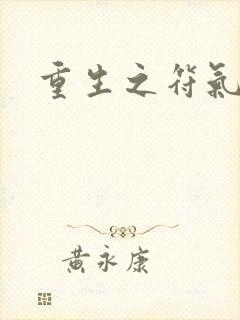 重生之符氣
黃永康